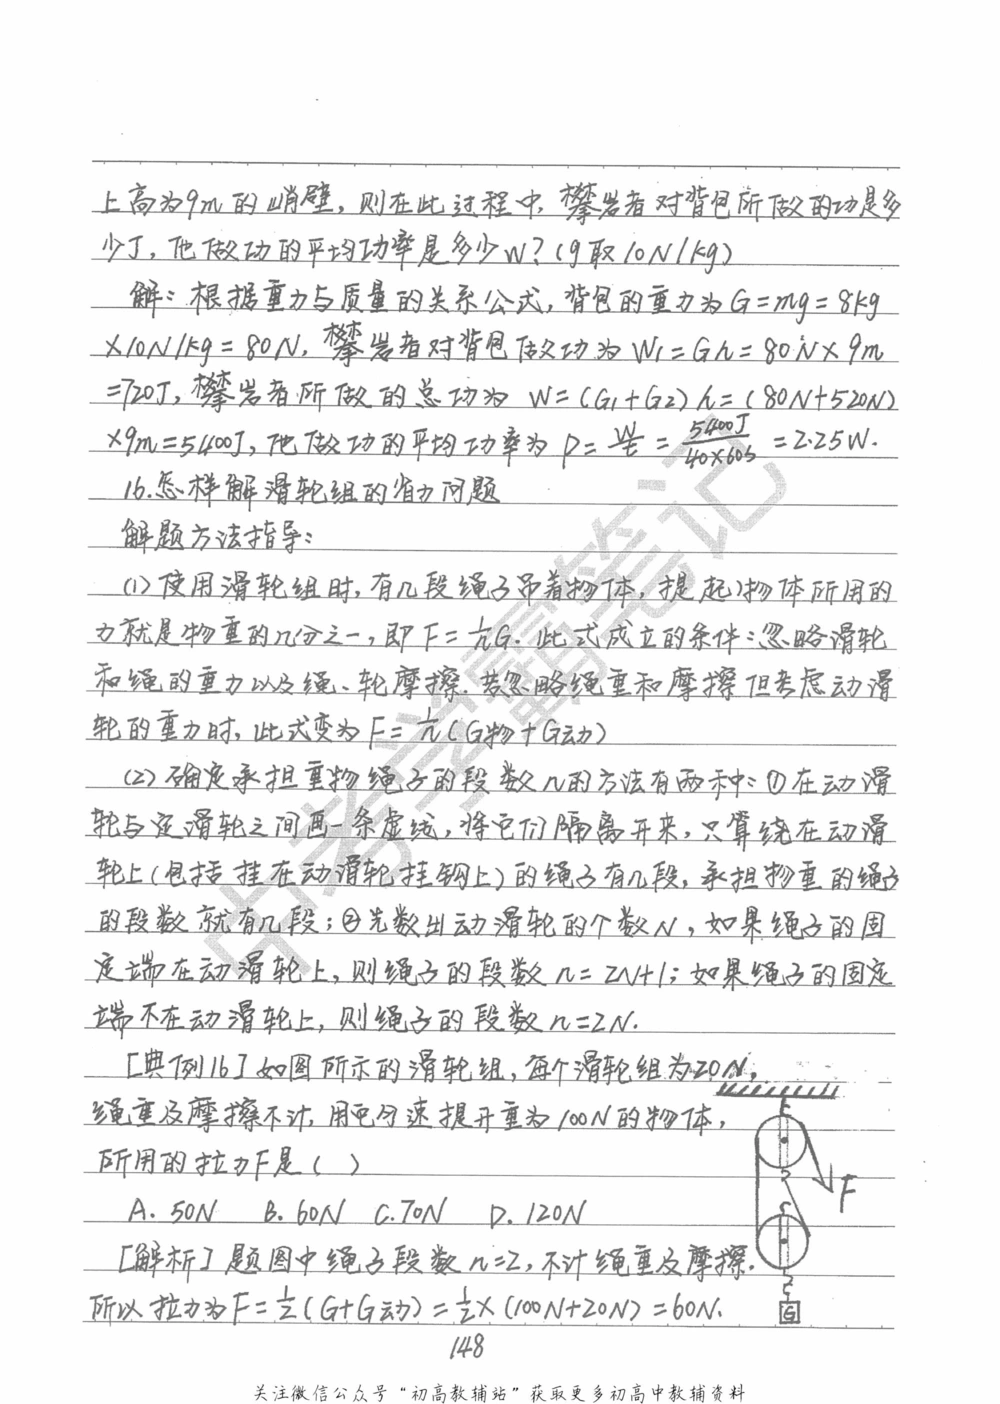 上高为9m的峭壁，则在此过程中，攀岩者对背包所做的功是多
少J，他做功的平均功率是多少W？(g取10N/kg)
解：根据重力与质量的关系公式，背包的重力为G=mg=8kg
×10N/kg=80N，攀岩者对背包做功为W1=Gh=80N×9m
=720J，攀岩者所做的总功为 W=(G1+G2)h=(80N+520N)
×9m=5400J，他做功的平均功率为 P=W/t=5400J/40×60s=2.25W.
16.怎样解滑轮组的省力问题
解题方法指导：
(1)使用滑轮组时，有几段绳子吊着物体，提起物体所用的
力就是物重的几分之一，即F=1/nG.此式成立的条件：忽略滑轮
和绳的重力以及绳、轮摩擦.若忽略绳重和摩擦但考虑动滑
轮的重力时，此式变为F=1/n(G物+G动)
(2)确定承担重物绳子的段数n的方法有两种：①在动滑
轮与定滑轮之间画一条虚线，将它们隔离开来，只算绕在动滑
轮上(包括挂在动滑轮挂钩上)的绳子有几段，承担物重的绳子
的段数就有几段；②先数出动滑轮的个数N，如果绳子的固
定端在动滑轮上，则绳子的段数n=2N+1；如果绳子的固定
端不在动滑轮上，则绳子的段数n=2N.
[典例16]如图所示的滑轮组，每个滑轮组为20N，
绳重及摩擦不计，用它匀速提升重为100N的物体，
所用的拉力F是( )
A. 50N B. 60N C.70N D. 120N
F
[解析]题图中绳子段数n=2，不计绳重及摩擦.
所以拉力为F=1/2(G+G动)=1/2×(100N+20N)=60N.
G
148
中考学霸笔记
关注微信公众号“初高教辅站”获取更多初高中教辅资料